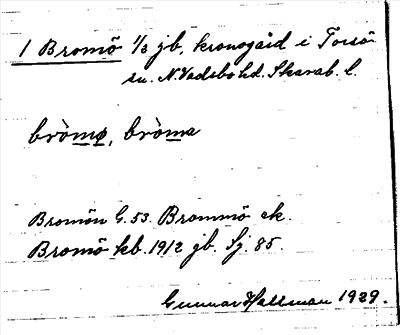 1 Bromö 1/3 jb, kronogård i Torsö
sn. N. Vadsbo hd. Skarab. l.
bròmø, bròma
Bromön G. 53. Brommö ek.
Bromö kb. 1912 jb. Sj. 85.
Gunnar Hallman 1929.